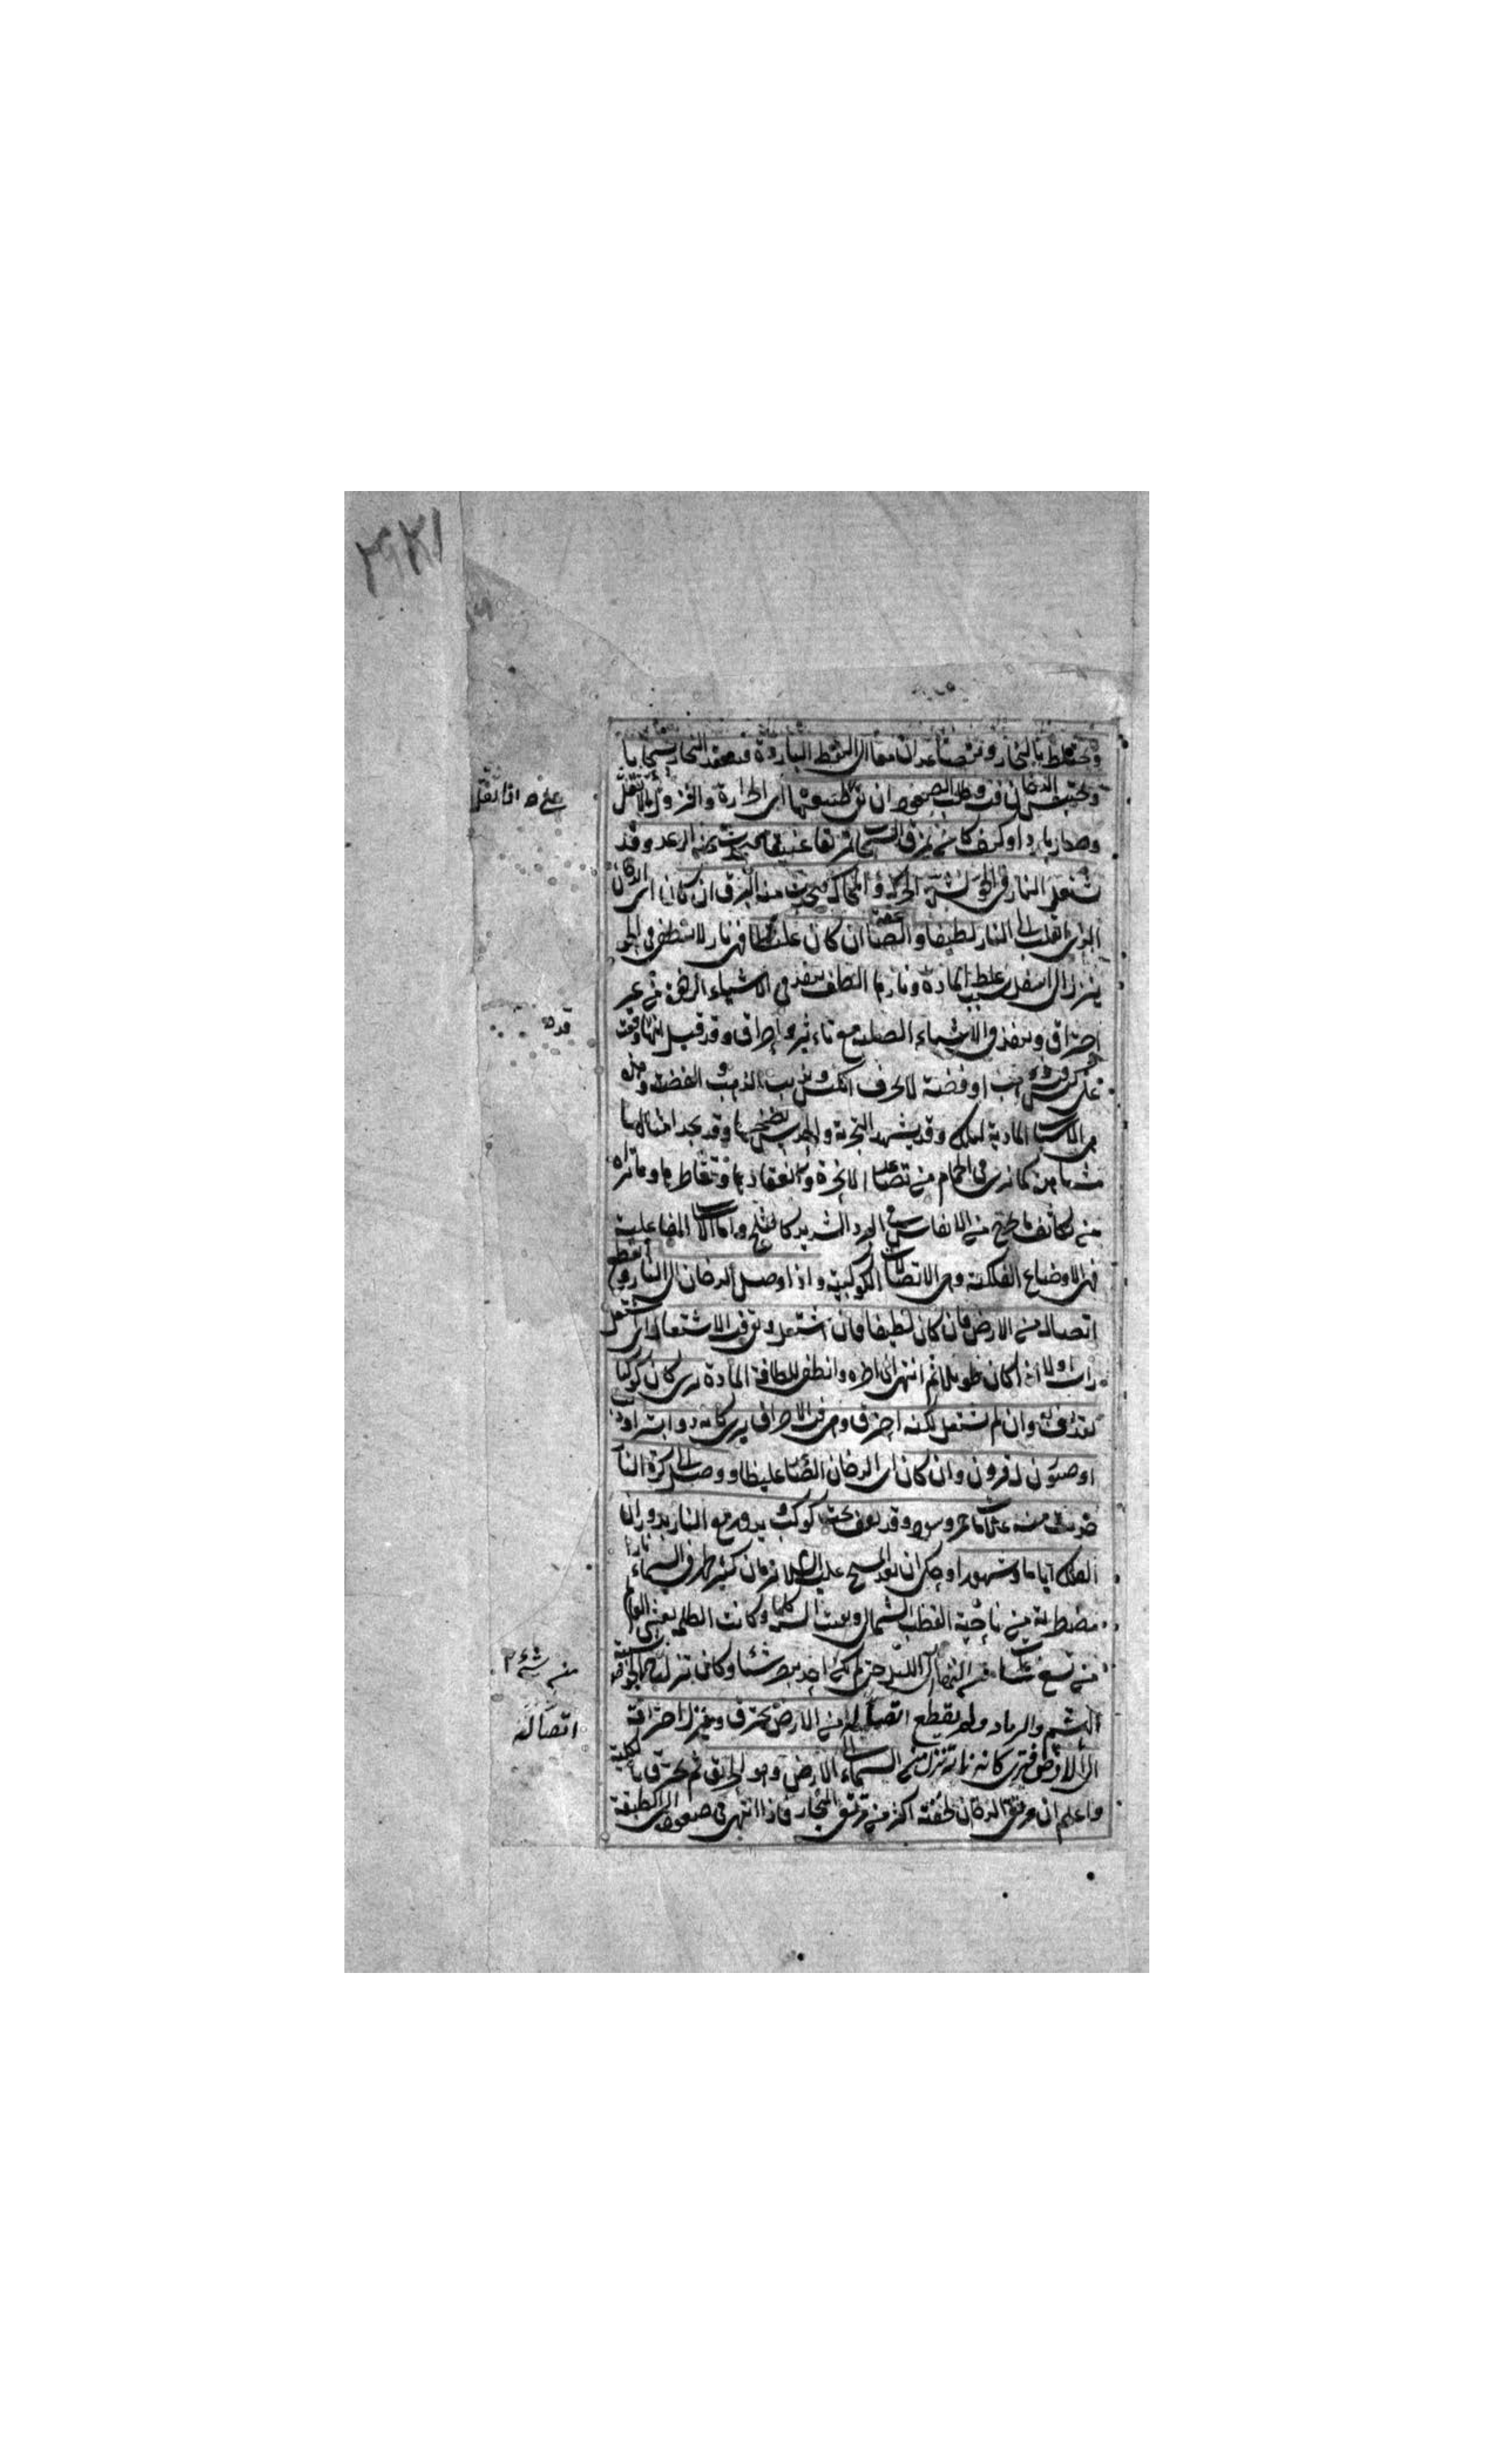 ٣٣١
ويختلط بالبخار ويتصاعدان معا الى الباردة فينعقد البخار سحابا
ويحتبس الدخان فيه وطلب الصعود ان بقى على طبيعتهما اى الحرارة والنزول ان ثقل
وصار باردا وكيف كان يمزق السحاب تمزيقا عنيفا فيحدث منه الرعد وقد
تشتعل النار فى الجو لشدة الحركة والمحاكة فيحدث منه البرق ان كان اى الدخان
الذى انقلب الى النار لطيفا والصاعقة ان كان غليظا فهى نار لا تنطفى فى الجو
ينزل الى اسفل بسبب غلظ المادة وناريتها الطف ينفذ فى الاشياء الرخوة من غير
احتراق وينفذ فى الاشياء الصلبة مع تاءثير واحراق وقد قيل انها وقعت
على ذهب او فضة لا يحرق الكيس ويذيب الذهب والفضة وهذه
هى الاسباب المادية لذلك وقد يشهد التجربة والحدس بصحتها وقد نجد امثالها
مشاهدة كما نرى فى الحمام من تصاعد الابخرة وانعقادها وتقاطرها وما نراه
من تكاثف ما يخرج من الانفاس فى البرد الشديد كالثلج واما الاسباب الفاعلية
فهى الاوضاع الفلكية وهى الاتصالات الكوكبية واذا وصل الدخان الى النار وانقطع
اتصاله من الارض فان كان لطيفا فان اشتعل وتوقف الاشتعال اى اشتعل
راسه اولا اذا كان طويلا ثم انتهى الى اخره وانطفى للطافة المادة يرى كان كوكبا
يقذف وان لم تشتعل لكنه احترق وهى فى الاحراق يرى كانه ذوابة او ذنب
او حيوان له قرون وان كان اى الدخان الصاعد غليظا ووصل الى كرة النار
حدثت منه علامات حمر وسود وقد يقف تحت كوكب يدور مع النار بدوران
الفلك اياما وشهورا وحكى ان بعد المسيح عليه السلام بزمان كثير ظهر فى السماء نار
مضطربة من ناحية القطب الشمالى وبقيت السنة كلها وكانت الظلمة تغشى العالم
من تسع ساعات من النهار الى الليل حتى لم يكن احد يبصر شيئا وكان ينزل من الجو شبه
الهشيم والرماد ولم ينقطع اتصاله من الارض يحترق وينزل احتراقه
الى الارض فيرى كانه نار تنزل من السماء الى الارض وهو الحريق ثم يحترق بالكلية
واعلم ان ترقى الدخان لخفته اكثر من ترقى البخار فاذا انتهى فى صعوده الى الطبقة
اذا ثقل
قده
من شىء
اتصاله